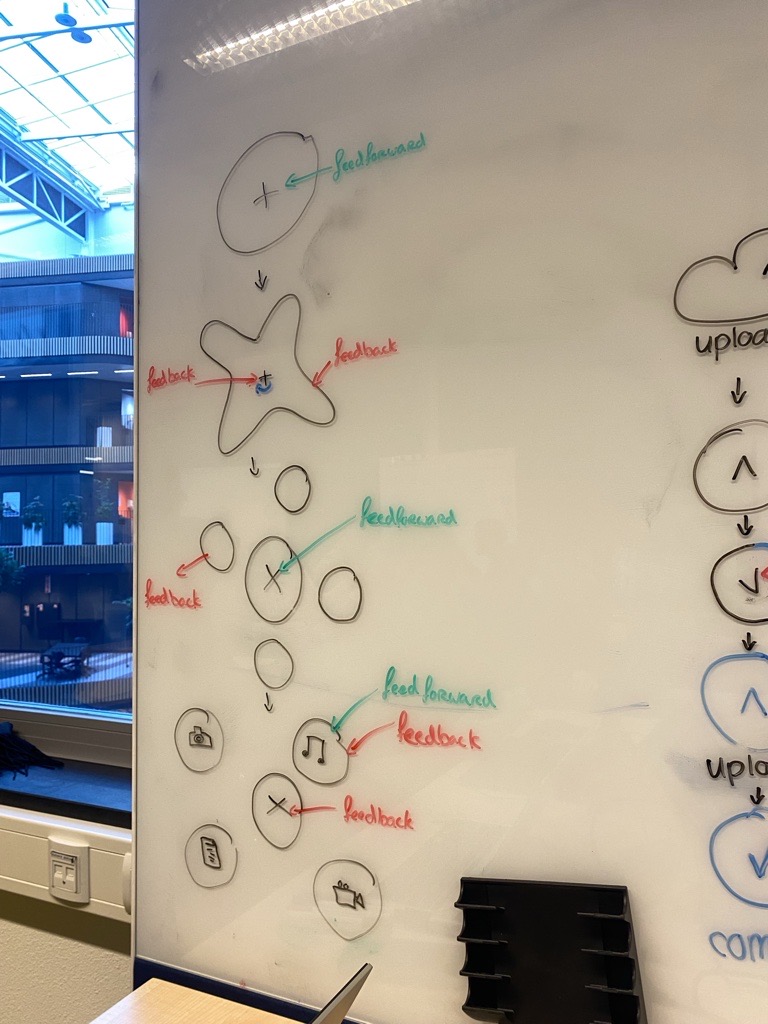 feedforward
feedback
feedback
feedforward
feedback
feedforward
feedback
feedback